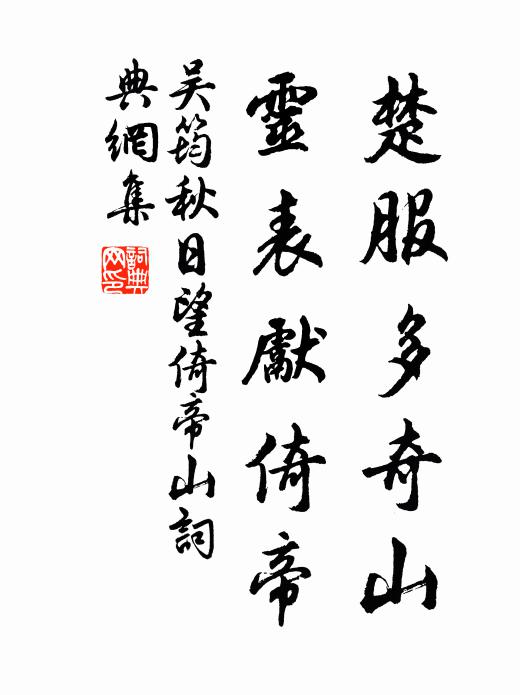 楚服多奇山
靈表獻倚帝
吴筠秋日望倚帝山詞
典網集
詞典
网印